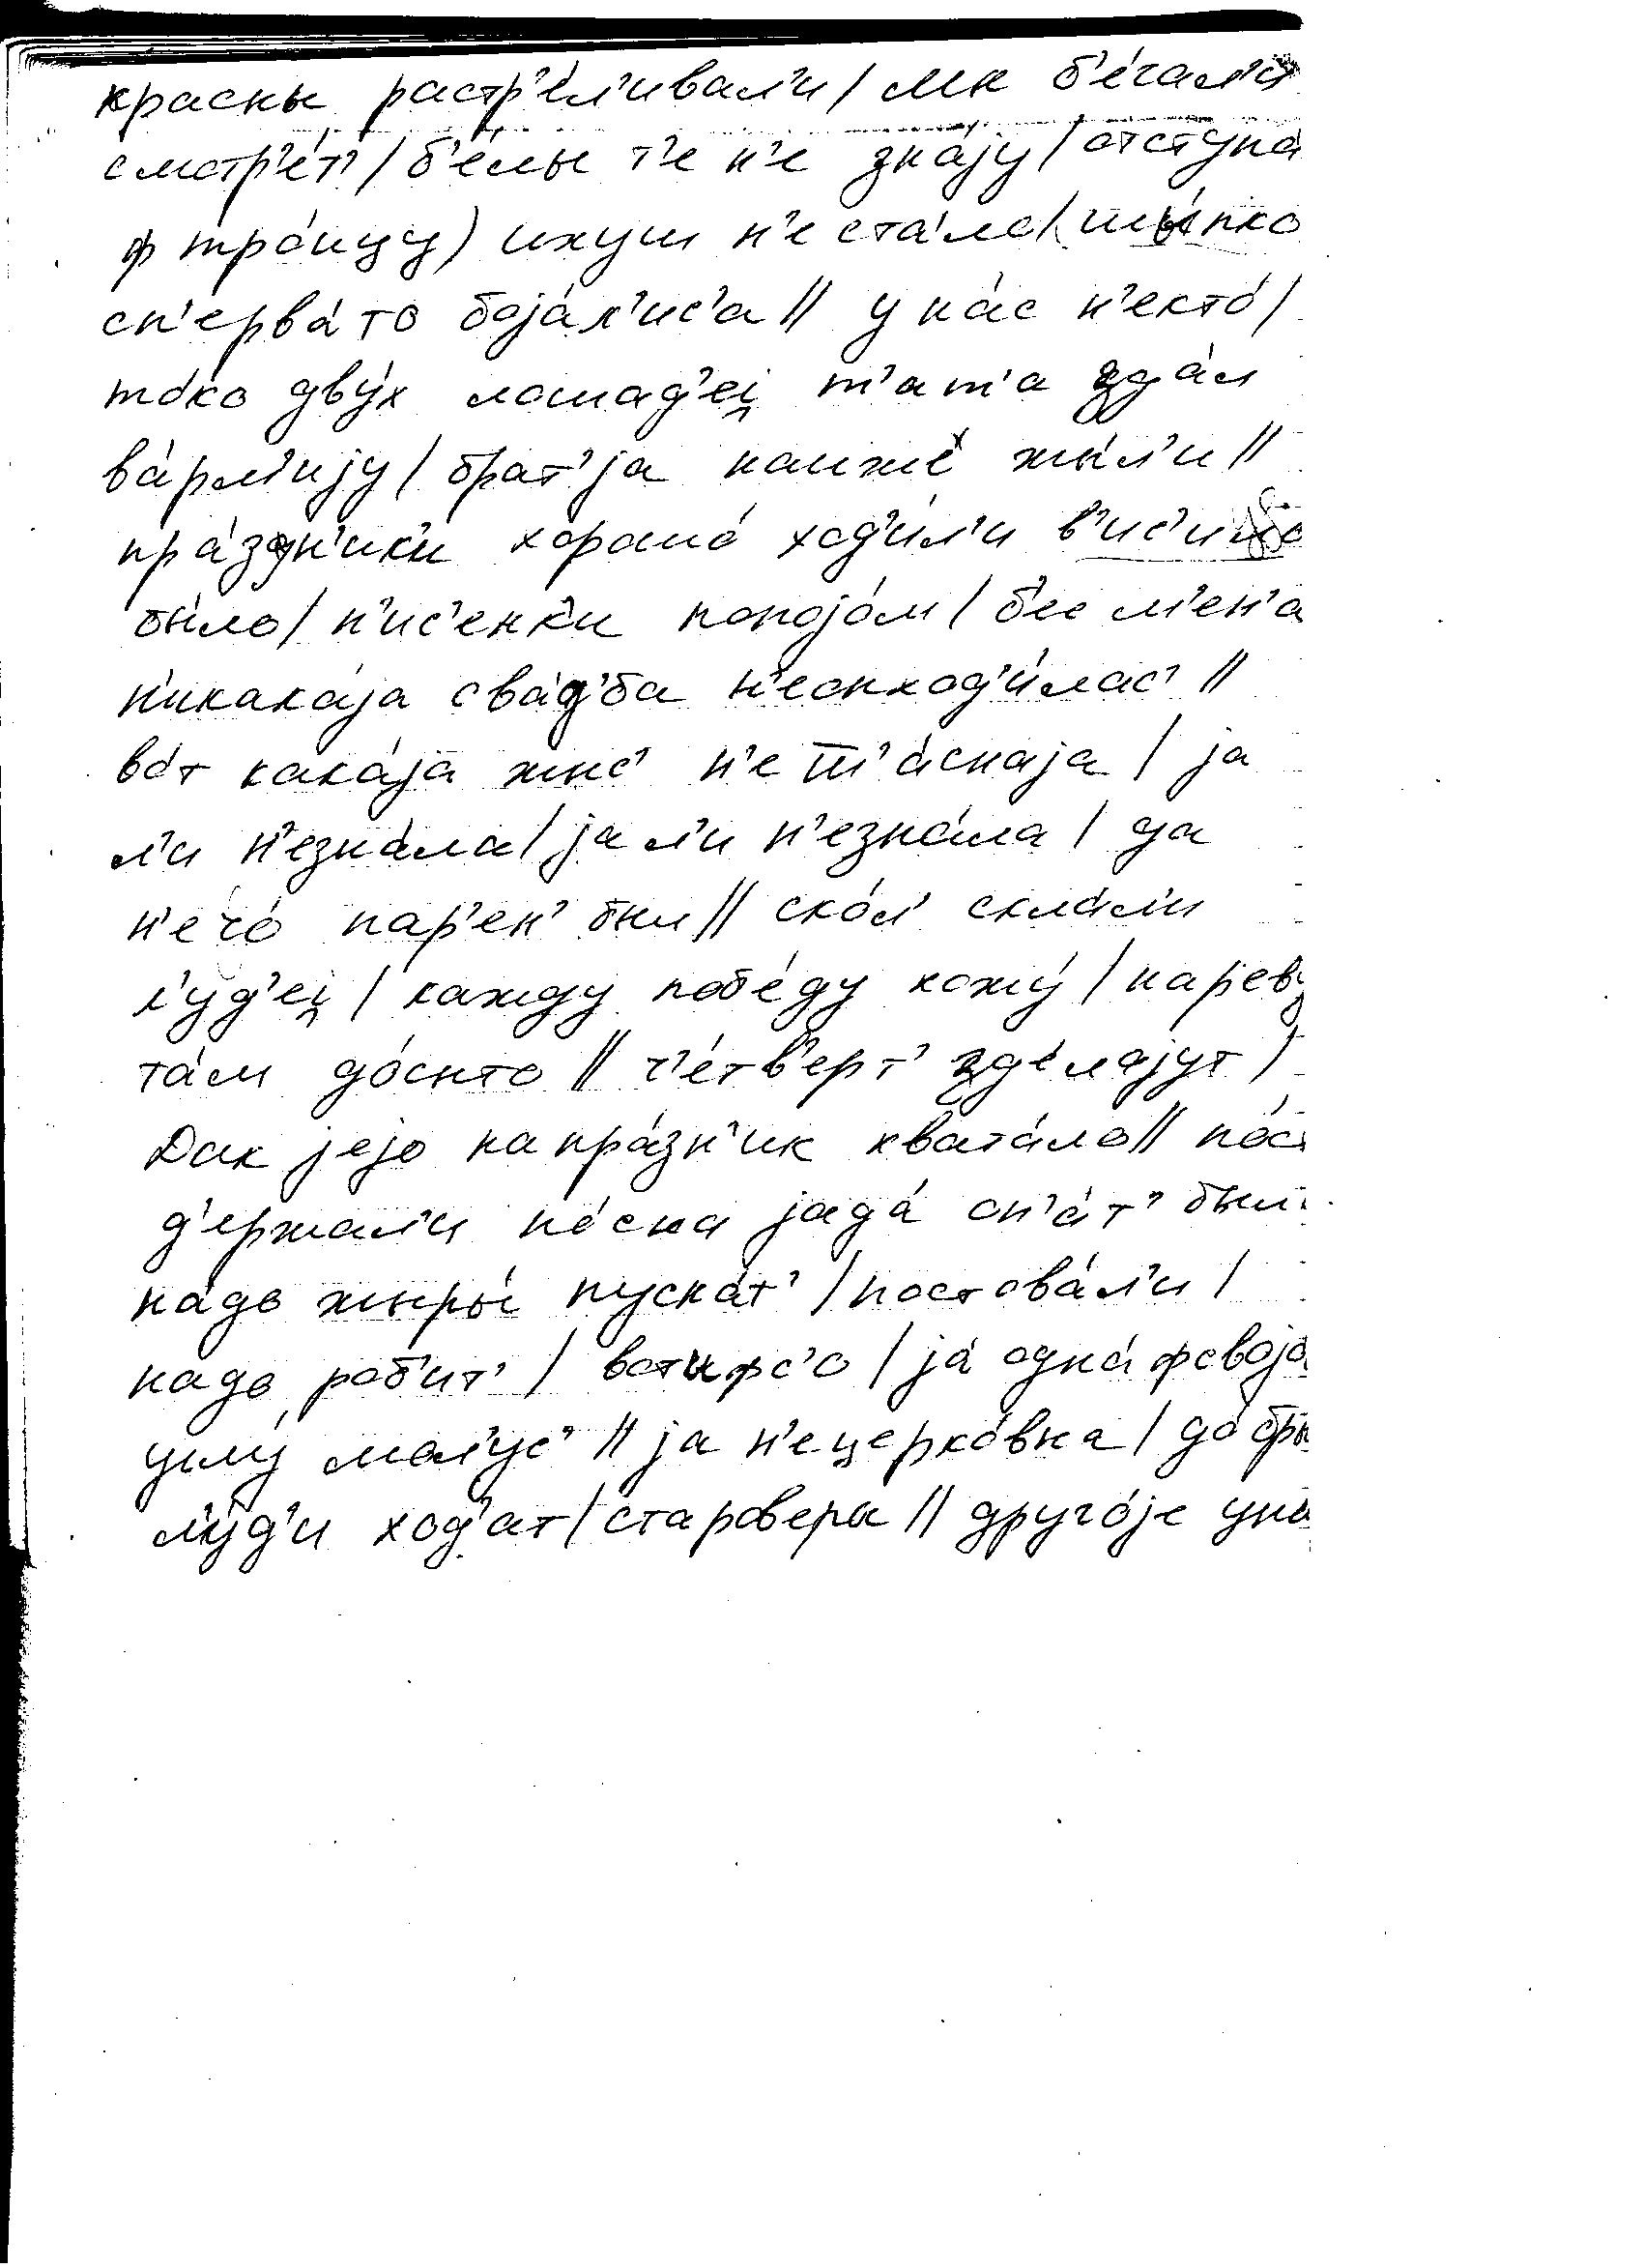 красны растр'е́л'ивал'и / мы б'е́гал'и
смотр'е́т' / б'е́лы т'е н'е зна́jу / отступа́
ф тро́ицу) ихуш н'е ста́ло / шы́пко
сп'ерва́ то боjа́л'ис'а // у на́с н'екто́ /
то́ко дву́х лошад'еi̯ т'ат'а зда́л
ва́рм'иjу / брат'jа наиже́ жы́л'и //
пра́здн'ик'и хорошо́ ход'и́л'и в'ис'ило
бы́ло / п'ис'енк'и попоjо́м / бес м'ен'а
н'икака́jа сва́д'ба н'еонход'и́лас' //
во́т кака́jа жыс' н'е ш'а́снаjа / jа
л'и н'езна́ла / jа л'и н'езна́ла / да
н'е чо́ пар'ен' был // ско́л' склал'и
л'уд'еi̯ / кажду побе́ду хожу́ / нарев
та́м до́сыто // ч'е́тв'ерт' зде́лаjут /
Дак jеjо на пра́зн'ик хвата́ло // по́ст
д'ержал'и по́сна jада́ оп'а́т' был
на́до жыры́ пуска́т' / постова́л'и /
надо роб'ит' / вотифс'о / jа́ одна́ фсвоjо
уму́ мол'ус' // jа н'ецерко́вна / до́бры
л'у́д'и ход'ат / старове́ры // друго́jе уна